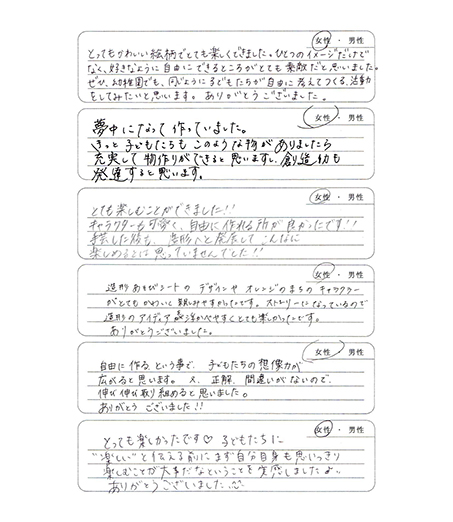 女性 ・ 男性
とってもかわいい絵柄でとても楽しくできました。ひとつのイメージだけで
なく、好きなように自由にできるところがとても素敵だと思いました。
ぜひ、幼稚園でも、同じように子どもたちが自由に考えてつくる活動
をしてみたいと思います。ありがとうございました。
女性 ・ 男性
夢中になって作っていました。
きっと子どもたちもこのような物がありましたら
充実して物作りができると思いますし、創造力も
発達すると思います。
女性 ・ 男性
とても楽しむことができました!!
キャラクターも可愛く、自由に作れる所が良かったです!!
手芸した後も、造形へと発展してこんなに
楽しめるとは思っていませんでした!!
女性 ・ 男性
造形あそびシートのデザインやオレンジのまちのキャラクター
がとてもかわいく親しみやすかったです。ストーリーになっているので
造形のアイディアも浮かべやすくとても楽しかったです。
ありがとうございました。
女性 ・ 男性
自由に作る、という事で、子どもたちの想像力が
広がると思います。又、正解、間違いがないので、
伸び伸び取り組めると思いました。
ありがとうございました!!
女性 ・ 男性
とっても楽しかったです♡ 子どもたちに
"楽しい"と伝える前にまず自分自身も思いっきり
楽しむことが大事だなということを実感しました
ありがとうございました